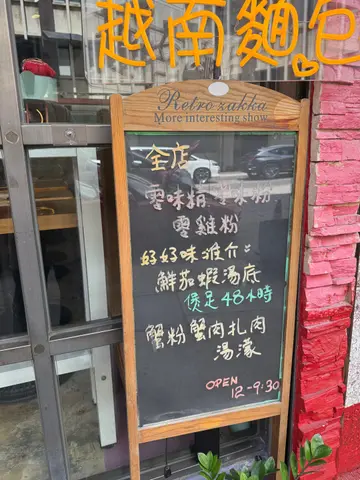 越南麵包
Retro zakka
More interesting show
全店
零味精 零味粉
零雞粉
好好味推介：
鮮茄蝦湯底
煲足48小時
蟹粉蟹肉扎肉
湯檬
OPEN
12-9:30